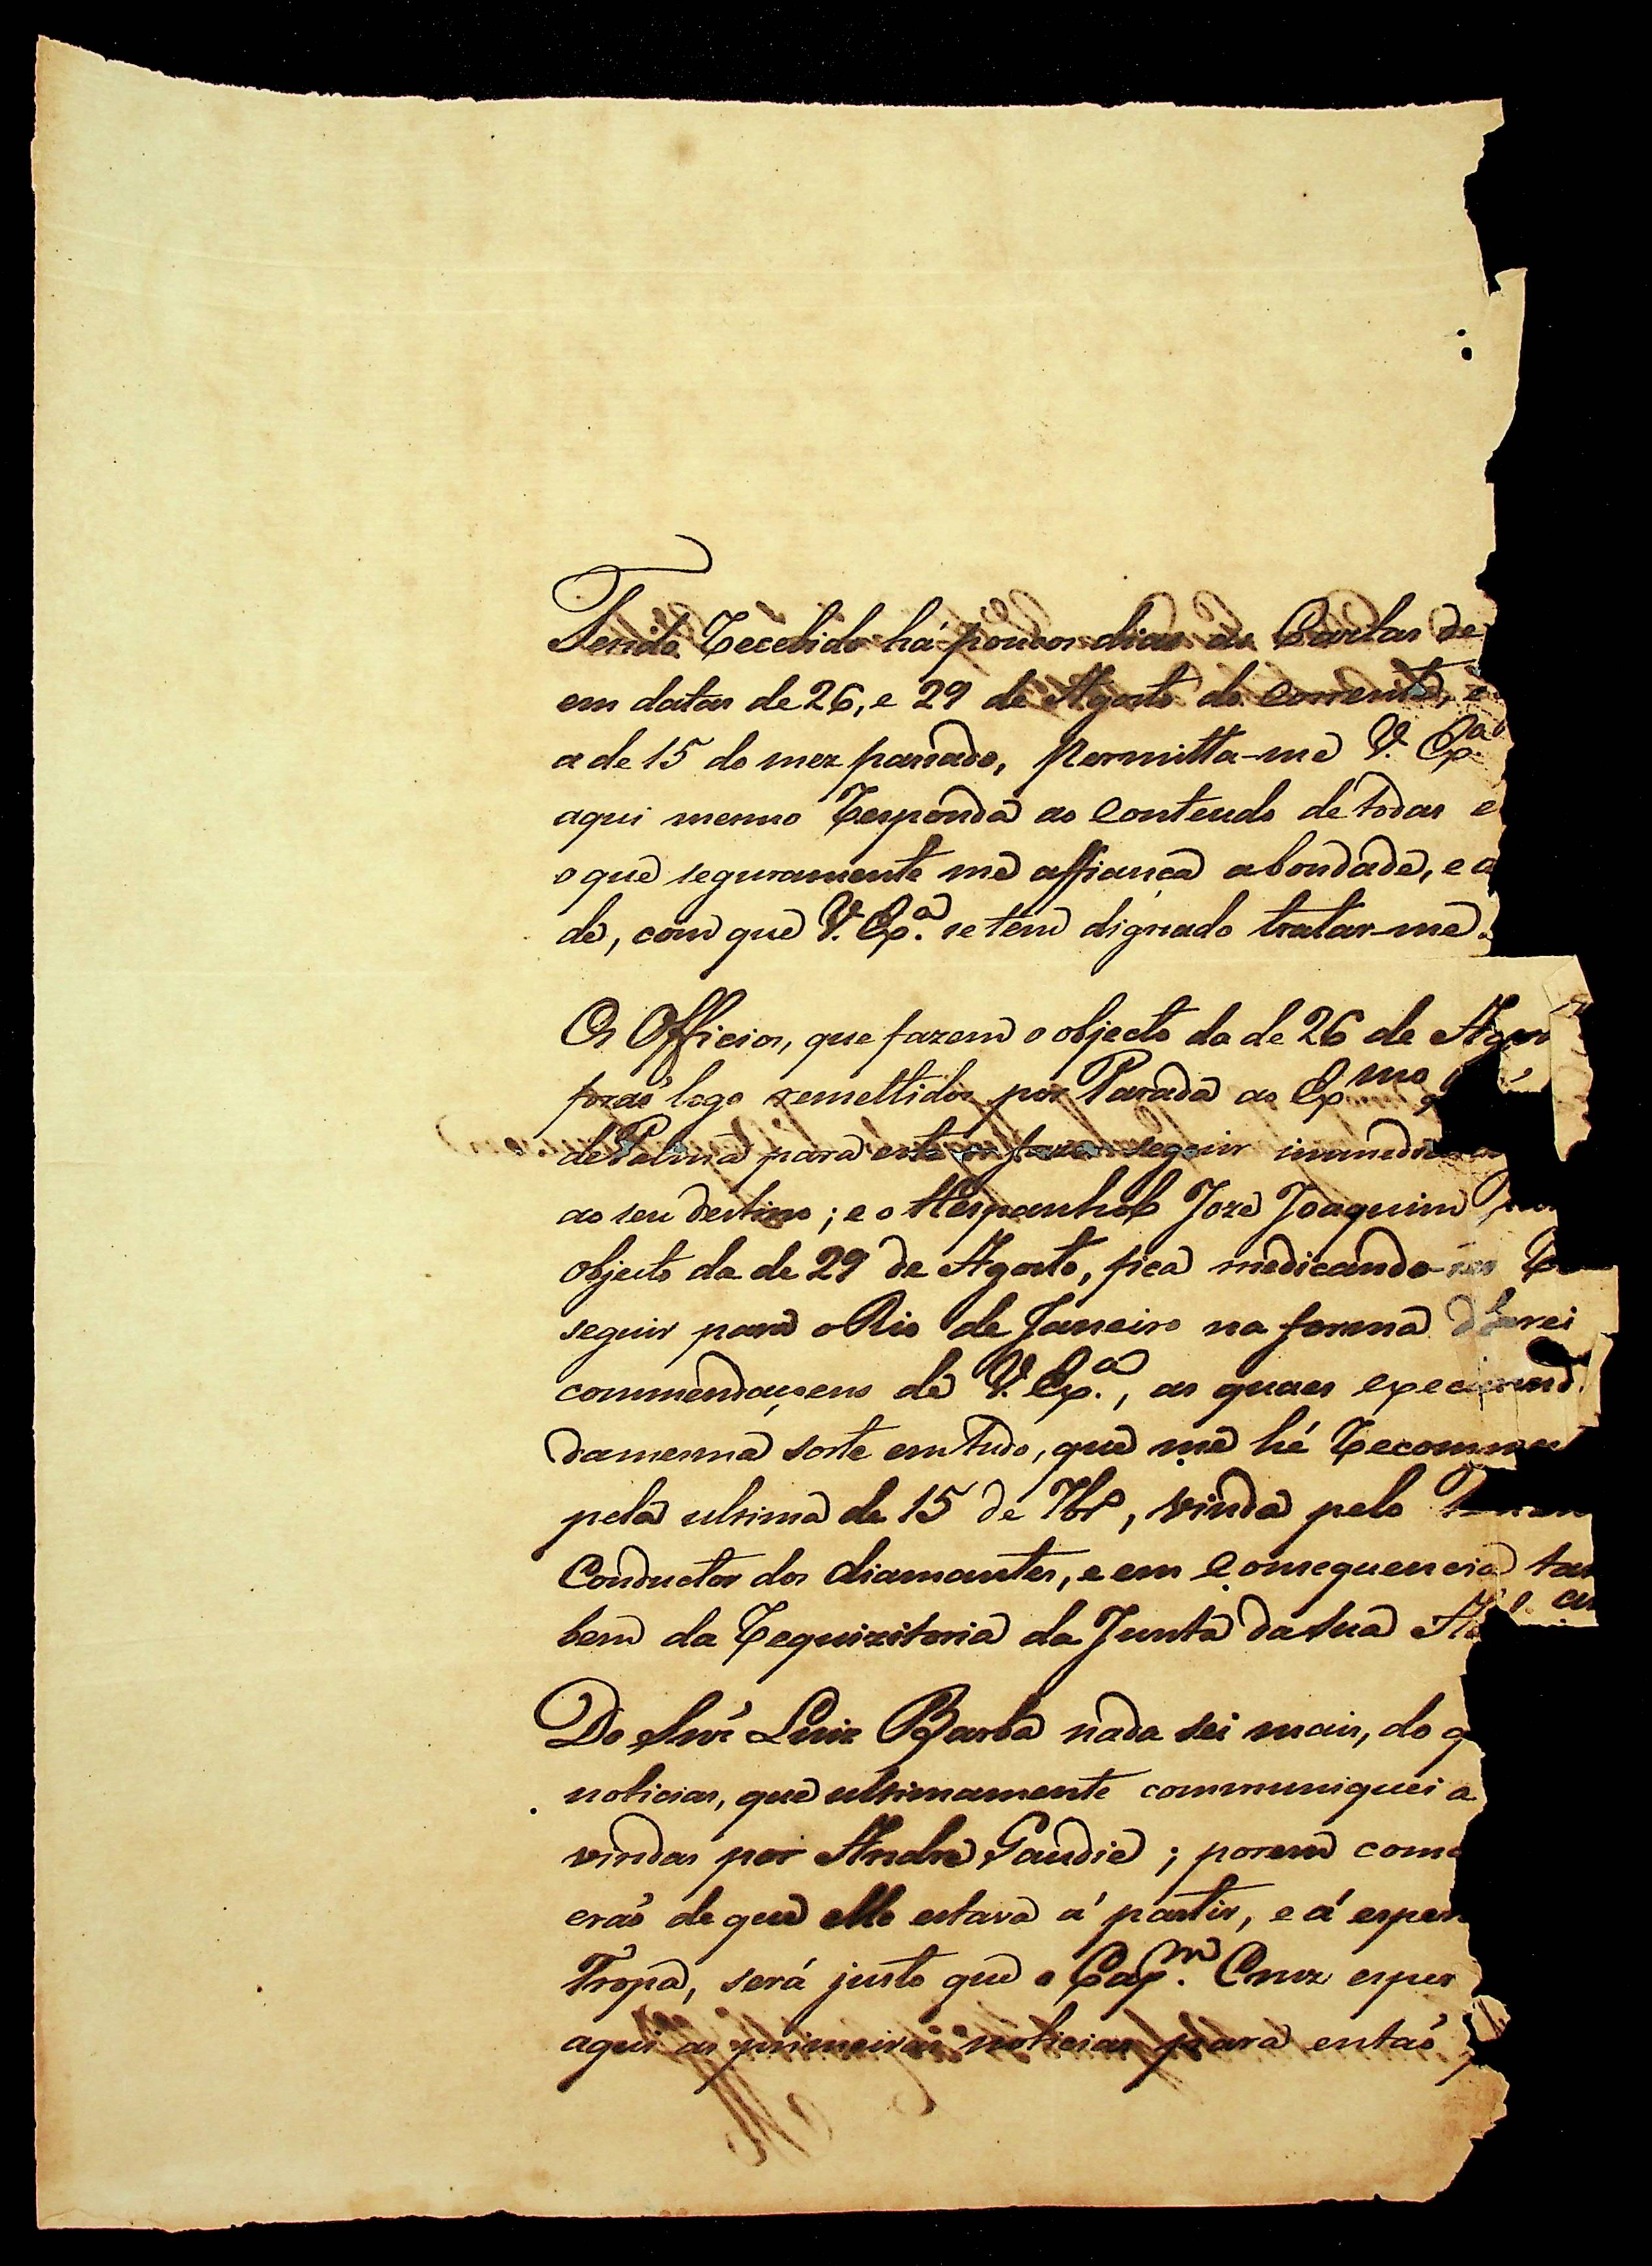 Tendo recebido há poucos dias as Cartas de
em datas de 26, e 29 de Agosto do corrente, e
a de 15 do mez passado, permitta-me V. Ex.ª
aqui mesmo responda ao contendo de todas e
o que seguramente me affiança a bondade, e a
de, com que V. Ex.ª se tem dignado tratar-me.
Os Officios, que fazem o objecto da de 26 de Agos
forão logo remettidos por Parada ao Ex.mo
de Palma para este os fazer seguir immedia
ao seu destino; e o Hespanhol Joze Joaquim
objecto da de 29 de Agosto, fica medicando-se
seguir para o Rio de Janeiro na forma das rei
commendaçens de V. Ex.ª, as quaes
da mesma sorte em tudo, que me há recommen
pela ultima de 15 de 7br.º, vinda pelo
Conductor dos diamantes, e em consequencia tam
bem da requizitoria da Junta da sua
Do Snr. Luiz Barba nada sei mais, do q
noticias, que ultimamente communiquei a
vindas por Andre Gaudie; porem como
erão de que elle estava á partir, e á esper
Tropa, será justo que o Cap.m Cruz esper
aqui as primeiras noticias para então